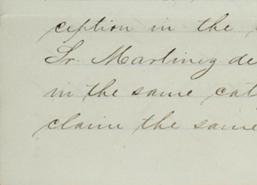 ception in the
Sr. Martinez de
in the same cat
claim the same